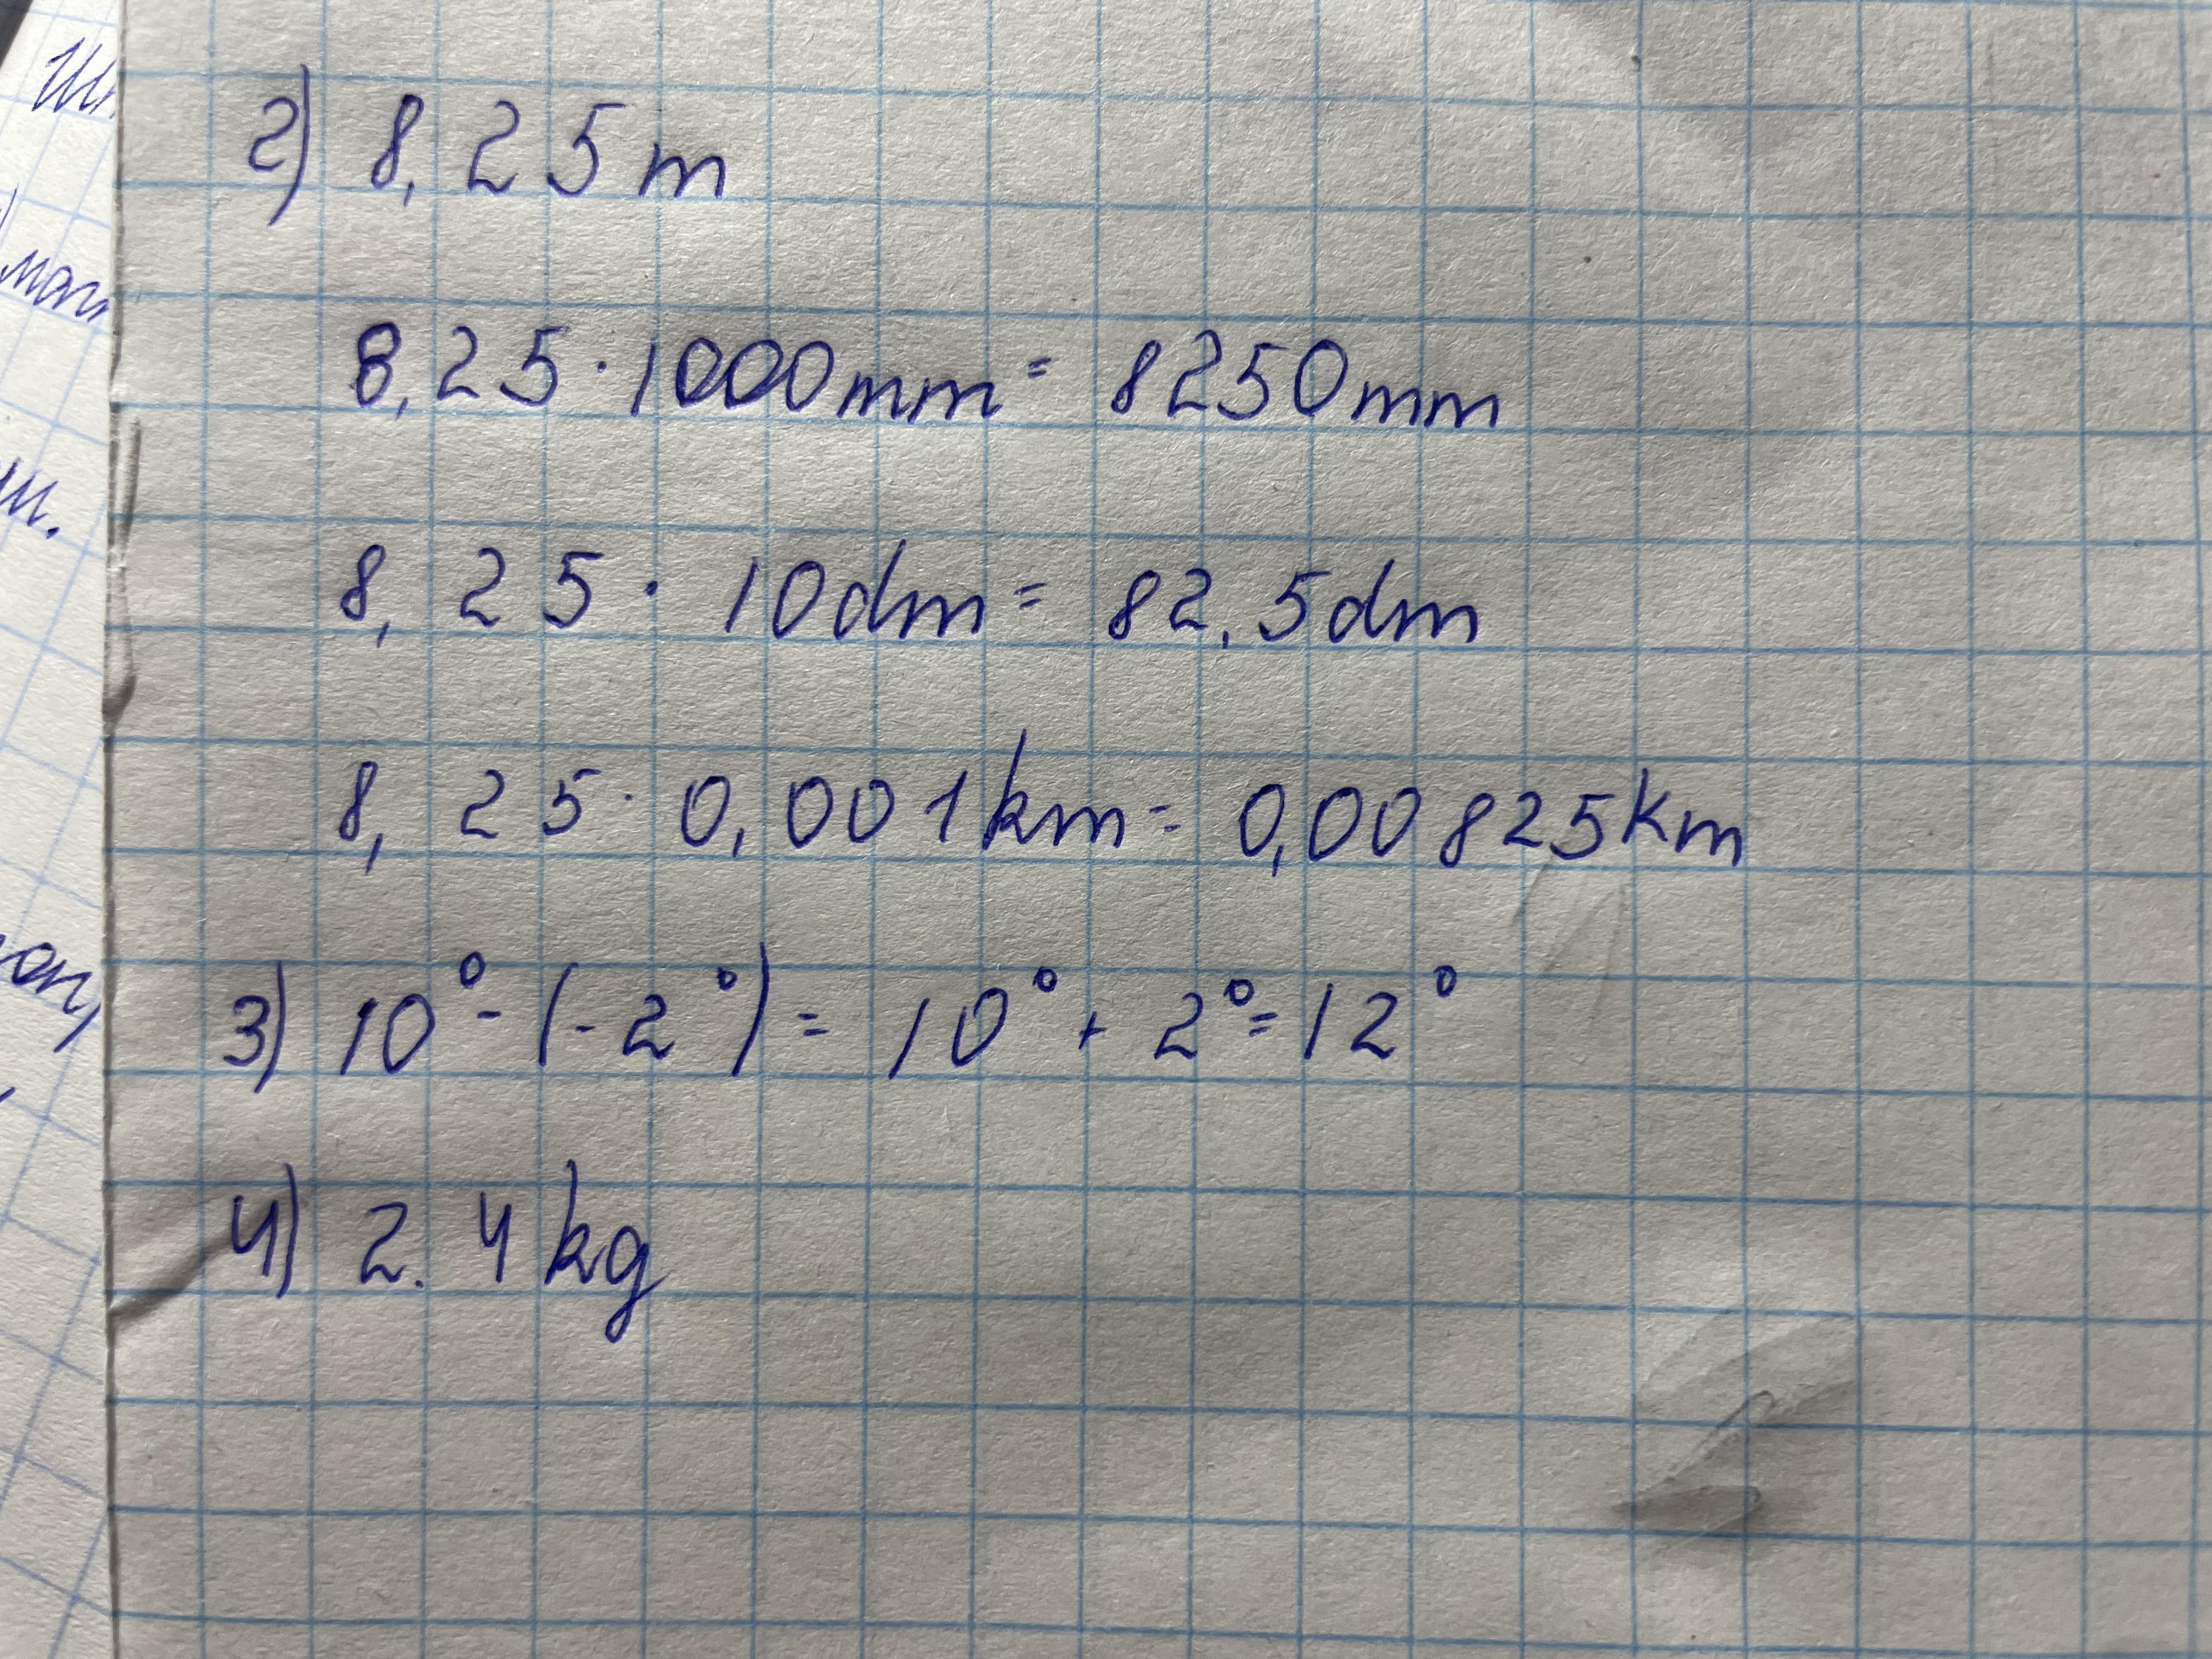 2) 8,25m
8,25·1000mm = 8250mm
8,25·10dm = 82,5dm
8,25·0,001km = 0,00825km
3) 10° - (-2°) = 10° + 2° = 12°
4) 2.4kg